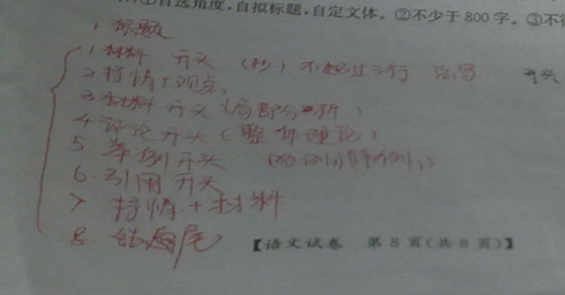 ①自选角度,自拟标题,自定文体。②不少于800字。③不
1 标题
1 材料 开头 (抄) 不超过三行 开头
2 抒情+观点
3 材料 开头 (局部分析)
4 评论 开头 (整体理论)
5 举例 开头
6 引用 开头
7 抒情+材料
8 结尾
【语文试卷 第8页(共8页)】